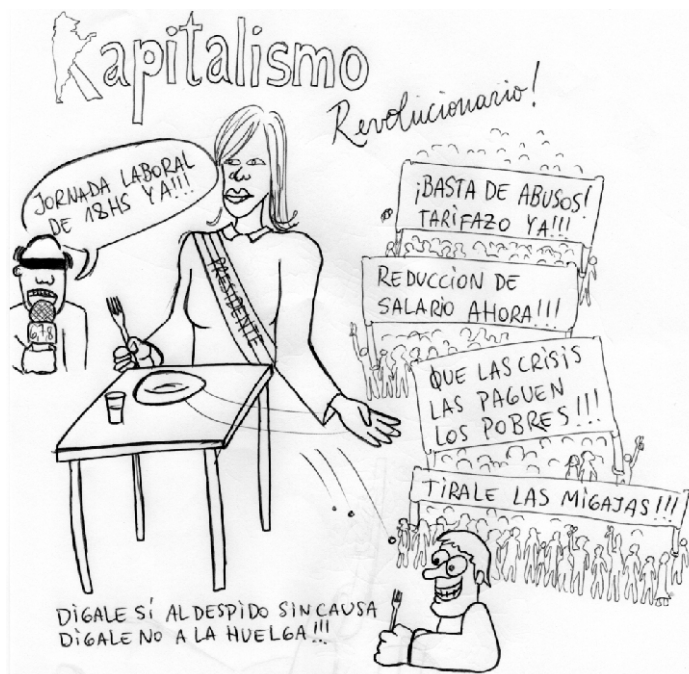 Kapitalismo
Revolucionario!
JORNADA LABORAL
DE 18HS YA!!!
6,7,8
PRESIDENTE
¡BASTA DE ABUSOS!
TARIFAZO YA!!!
REDUCCION DE
SALARIO AHORA!!!
QUE LAS CRISIS
LAS PAGUEN
LOS POBRES!!!
TIRALE LAS MIGAJAS!!!
DIGALE SÍ AL DESPIDO SIN CAUSA
DIGALE NO A LA HUELGA!!!